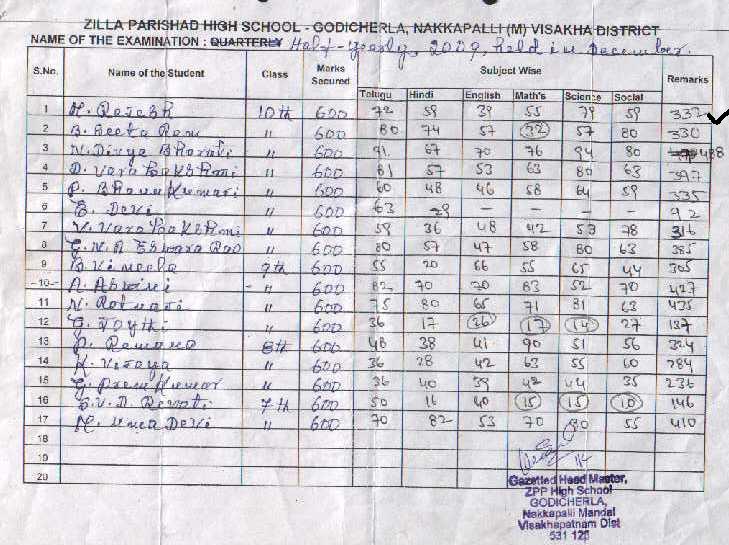 ZILLA PARISHAD HIGH SCHOOL - GODICHERLA, NAKKAPALLI (M) VISAKHA DISTRICT
NAME OF THE EXAMINATION : QUARTERLY Half-yearly, 2009, held in December.
S.No. Name of the Student Class Marks Secured Subject Wise Remarks
Telugu Hindi English Math's Science Social
1 10th 600 72 59 39 55 79 59 332
2 B. Seeta Ram " 600 80 74 57 32 57 80 330
3 N. Divya Bharati " 600 91 67 70 76 94 80 488
4 D. Vara Lakshmi " 600 81 57 53 63 80 63 397
5 P. Bhanu Kumari " 600 60 48 46 58 64 59 335
6 Devi " 600 63 29 - - - - 92
7 V. Vara Lakshmi " 600 59 36 48 42 53 78 316
8 Eswara Rao " 600 80 57 47 58 80 63 385
9 9th 600 55 20 66 55 65 44 305
10 " 600 82 70 70 83 52 70 427
11 N. Ratnavi " 600 75 80 65 71 81 63 435
12 " 600 36 17 26 17 14 27 137
13 P. Ramana 8th 600 48 38 41 90 51 56 324
14 K. Vizaya " 600 36 28 42 63 55 60 284
15 G. Prem Kumar " 600 36 40 39 42 44 35 236
16 G.V.D. Revati 7th 600 50 16 40 15 15 10 146
17 M. Uma Devi " 600 70 82 53 70 80 55 410
18
19
20
Gazetted Head Master,
ZPP High School
GODICHERLA,
Nakkapalli Mandal
Visakhapatnam Dist
531 126